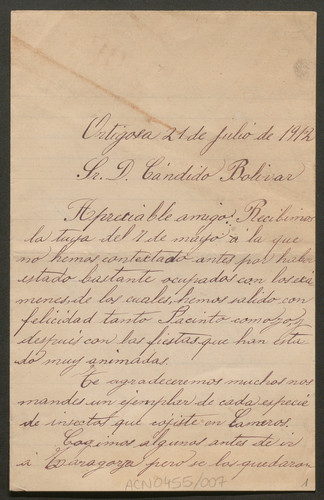 Ortigosa 21 de Julio de 1912
Sr. D. Cándido Bolivar
Apreciable amigo: Recibimos
la tuya del 7 de mayo á la que
no hemos contextado antes por haber
estado bastante ocupados con los exá
menes de los cuales hemos salido con
felicidad tanto Jacinto como yo, y
después con las fiestas que han esta
do muy animadas.
Te agradeceremos mucho nos
mandes un ejemplar de cada especie
de insectos que cojiste en Cameros.
Cogimos algunos antes de ir
á Zaragoza pero se los quedaron
ACN0455/007
1